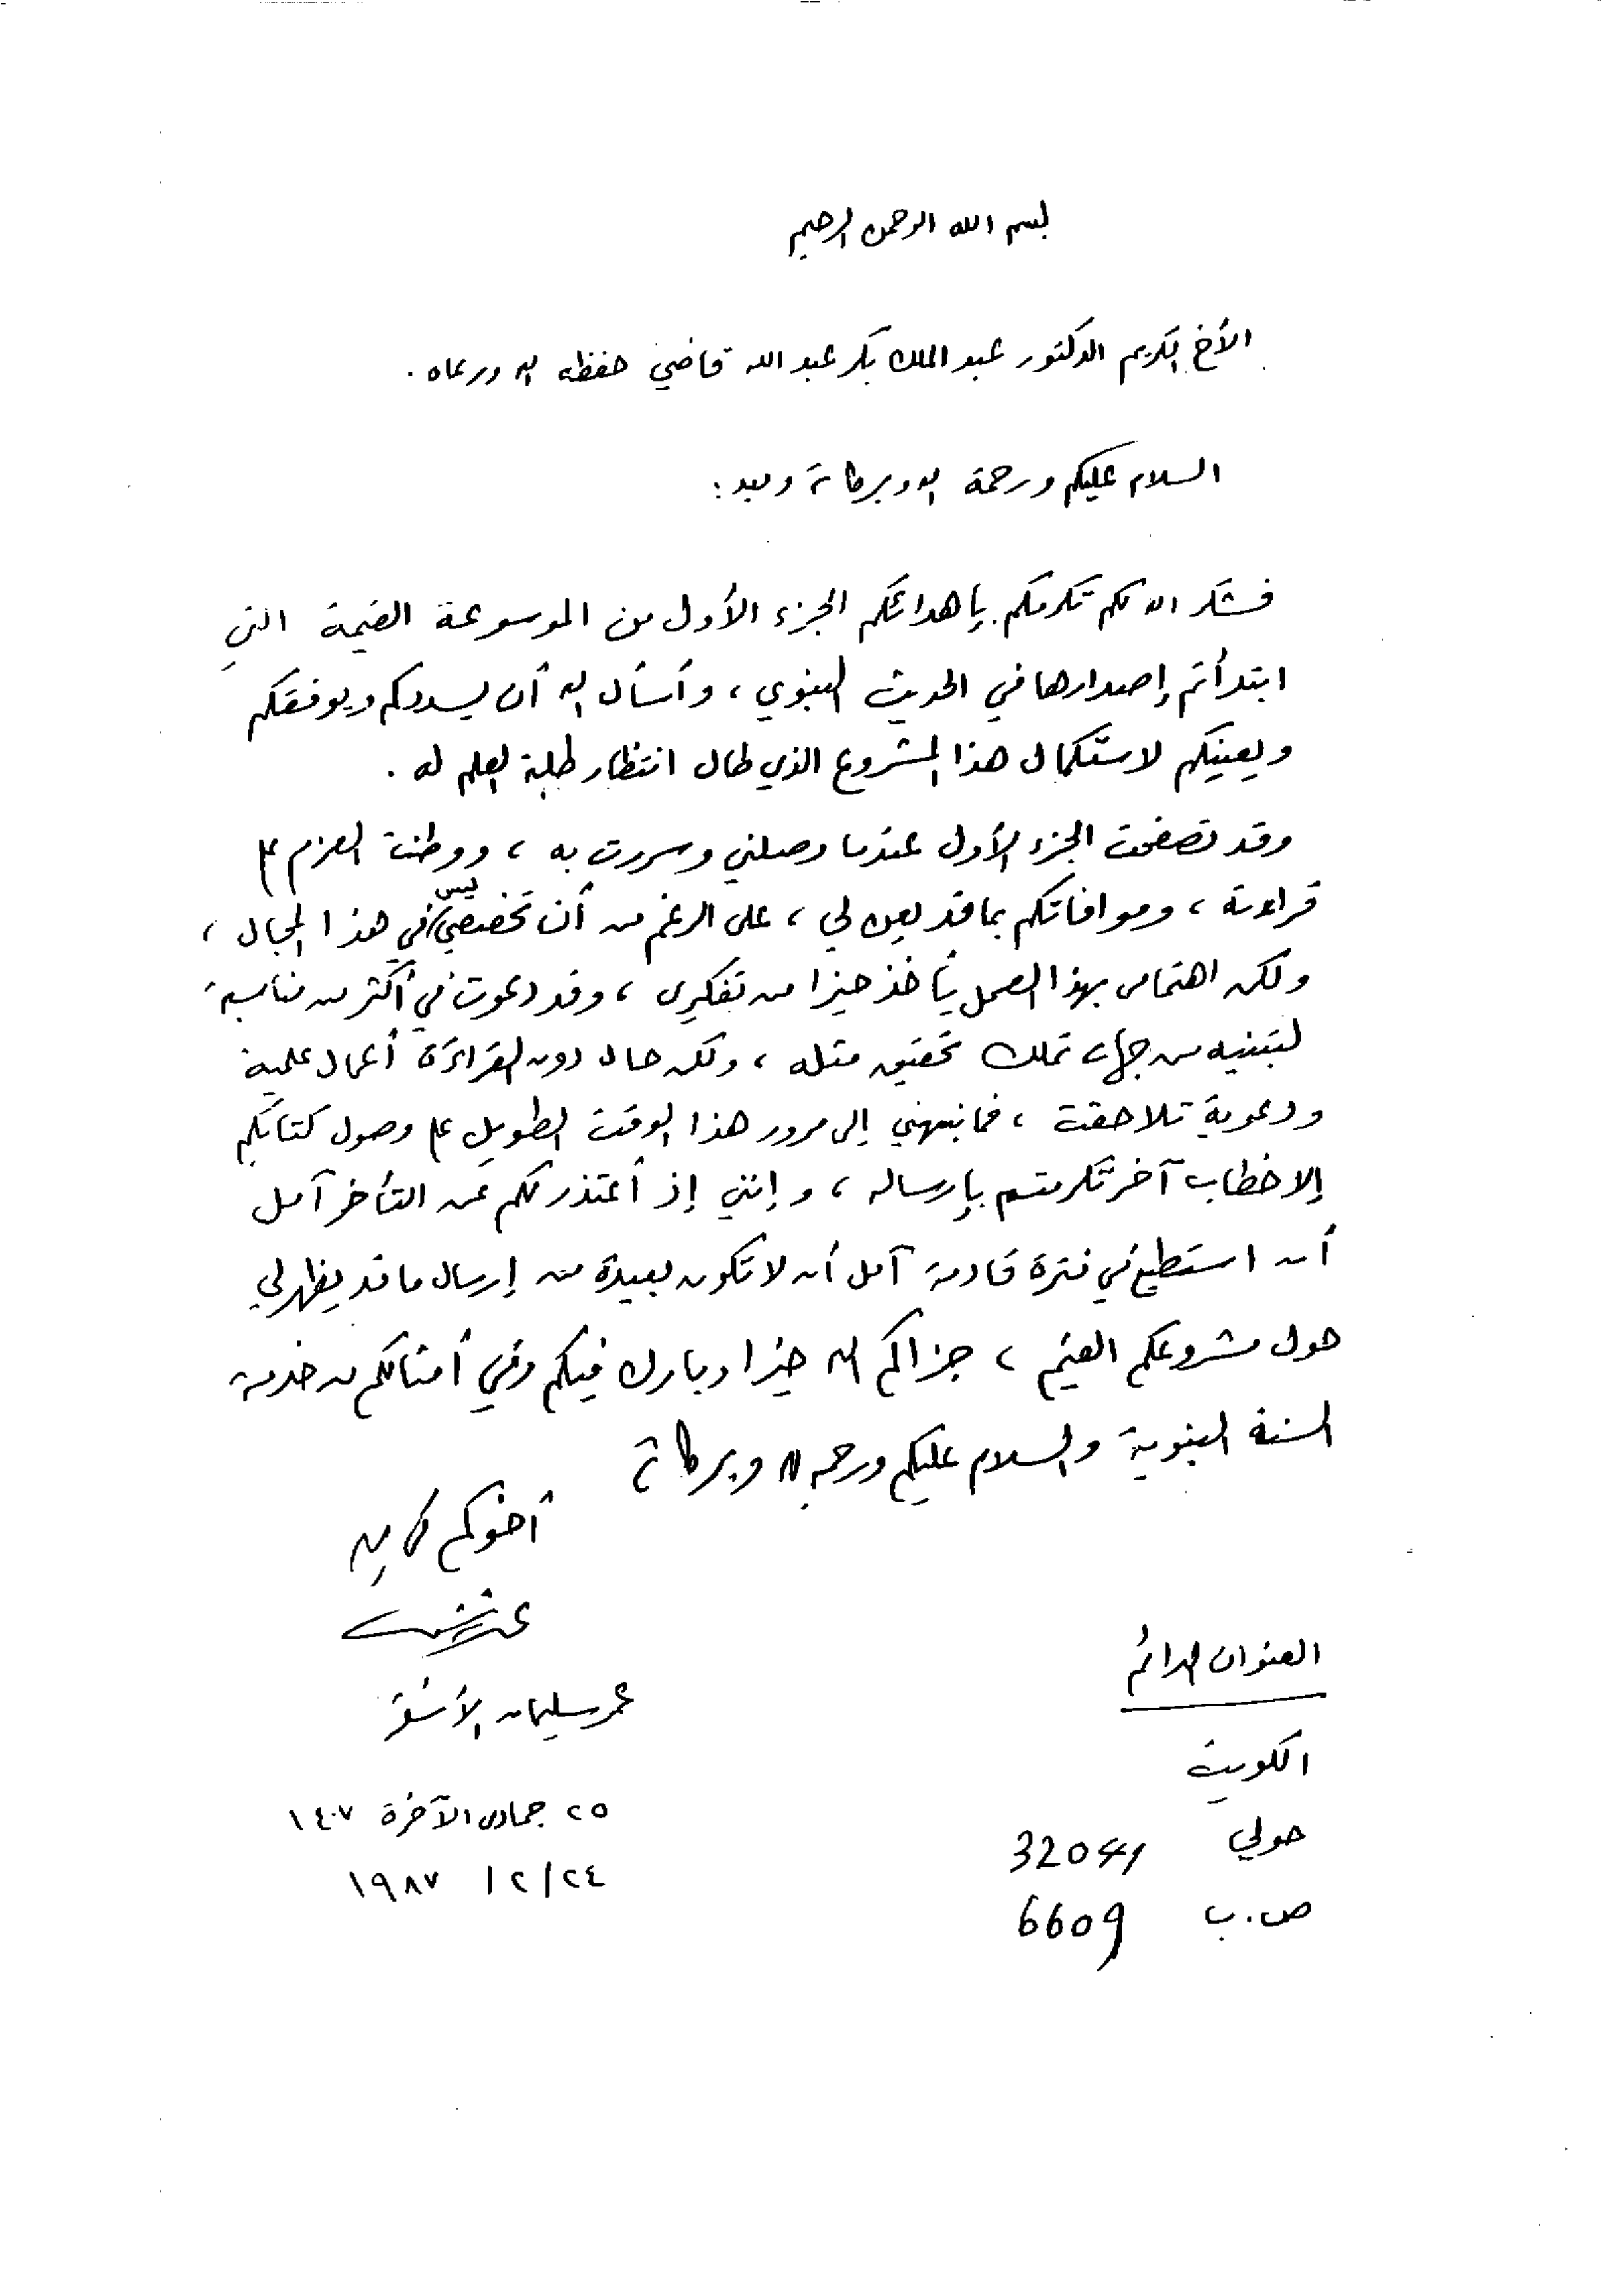 بسم الله الرحمن الرحيم
الأخ الكريم الدكتور عبد الملك بكر عبد الله قاضي حفظه الله ورعاه .
السلام عليكم ورحمة الله وبركاته وبعد :
فشكر الله لكم تكرمكم بإهدائكم الجزء الأول من الموسوعة القيمة التي
ابتدأتم إصدارها في الحديث النبوي ، وأسأل الله أن يسددكم ويوفقكم
ويعينكم لاستكمال هذا المشروع الذي طال انتظار طلبة العلم له .
وقد تصفحت الجزء الأول عندما وصلني وسررت به ، ووطنت العزم على
قراءته ، وموافاتكم بما قد يعن لي ، على الرغم من أن تخصصي ليس في هذا المجال ،
ولكن اهتمامي بهذا العمل يأخذ حيزا من تفكيري ، وقد دعوت في أكثر من مناسبة
لتبنيه من جهات تملك تحقيق مثله ، ولكن حال دون القراءة أعمال علمية
ودعوية تلاحقت ، فما نبهني إلى مرور هذا الوقت الطويل على وصول كتابكم
إلا خطاب آخر تكرمتم بإرساله ، وإنني إذ أعتذر لكم عن التأخر آمل
أن استطيع في فترة قادمة آمل أن لا تكون بعيدة من إرسال ما قد يظهر لي
حول مشروعكم القيم ، جزاكم الله خيرا وبارك فيكم وفي أمثالكم من خدمة
السنة النبوية والسلام عليكم ورحمة الله وبركاته
أخوكم
عمر سليمان الأشقر
٢٥ جمادى الآخرة ١٤٠٧
٢٤/٢/ ١٩٨٧
العنوان الدائم
الكويت
حولي 32041
ص . ب 6609